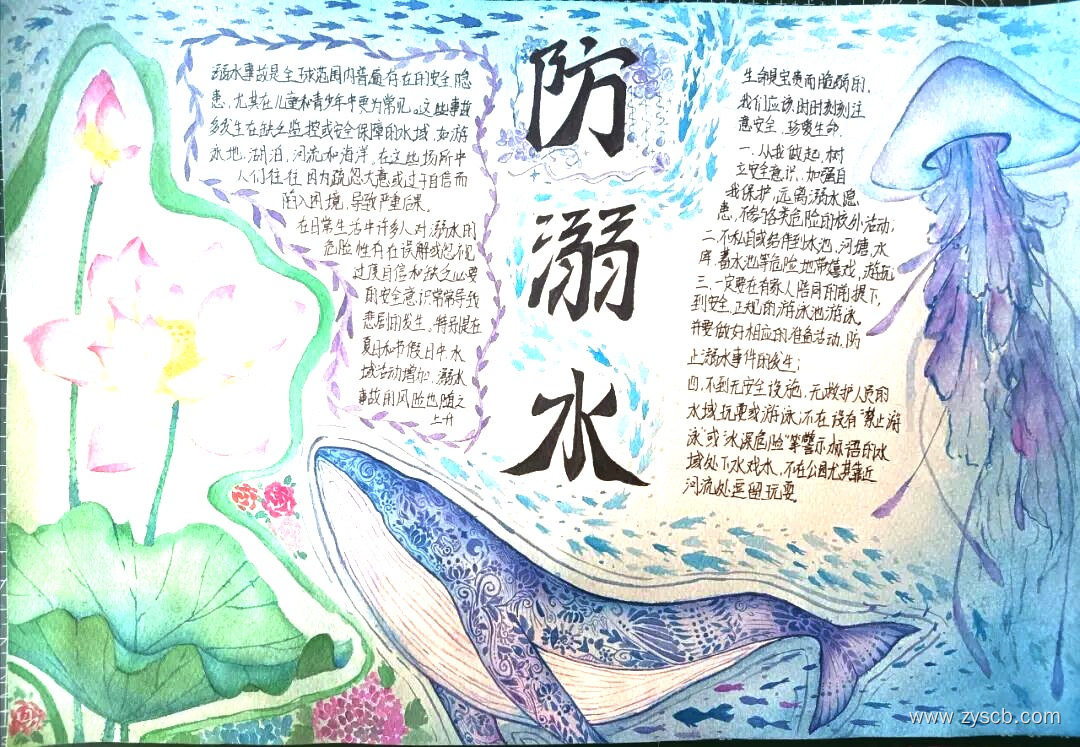 溺水事故是全球范围内普遍存在的安全隐
患，尤其在儿童和青少年中更为常见。这些事故
多发生在缺乏监控或安全保障的水域，如游
泳池、湖泊、河流和海洋，在这些场所中
人们往往因为疏忽大意或过于自信而
陷入困境，导致严重后果。
在日常生活中许多人对溺水的
危险性存在误解或忽视
过度自信和缺乏必要
的安全意识常常导致
悲剧的发生，特别是在
夏日和节假日中水
域活动增加，溺水
事故的风险也随之
上升
防
溺
水
生命是宝贵而脆弱的，
我们应该时时刻刻注
意安全，珍爱生命.
一、从我做起，树
立安全意识，加强自
我保护，远离溺水隐
患，不参各类危险的校外活动，
二、不私自或结伴到水池，河塘，水
库，蓄水池等危险地带嬉戏，游玩
三、一定要在有家人陪同的前提下，
到安全，正规的游泳池游泳，
并要做好相应的准备活动，防
止溺水事件的发生；
四、不到无安全设施，无救护人员的
水域玩耍或游泳，不在设有“禁止游
泳”或“水深危险”等警示标语的水
域处下水戏水，不在公园尤其靠近
河流处逗留玩耍
www.zyscb.com